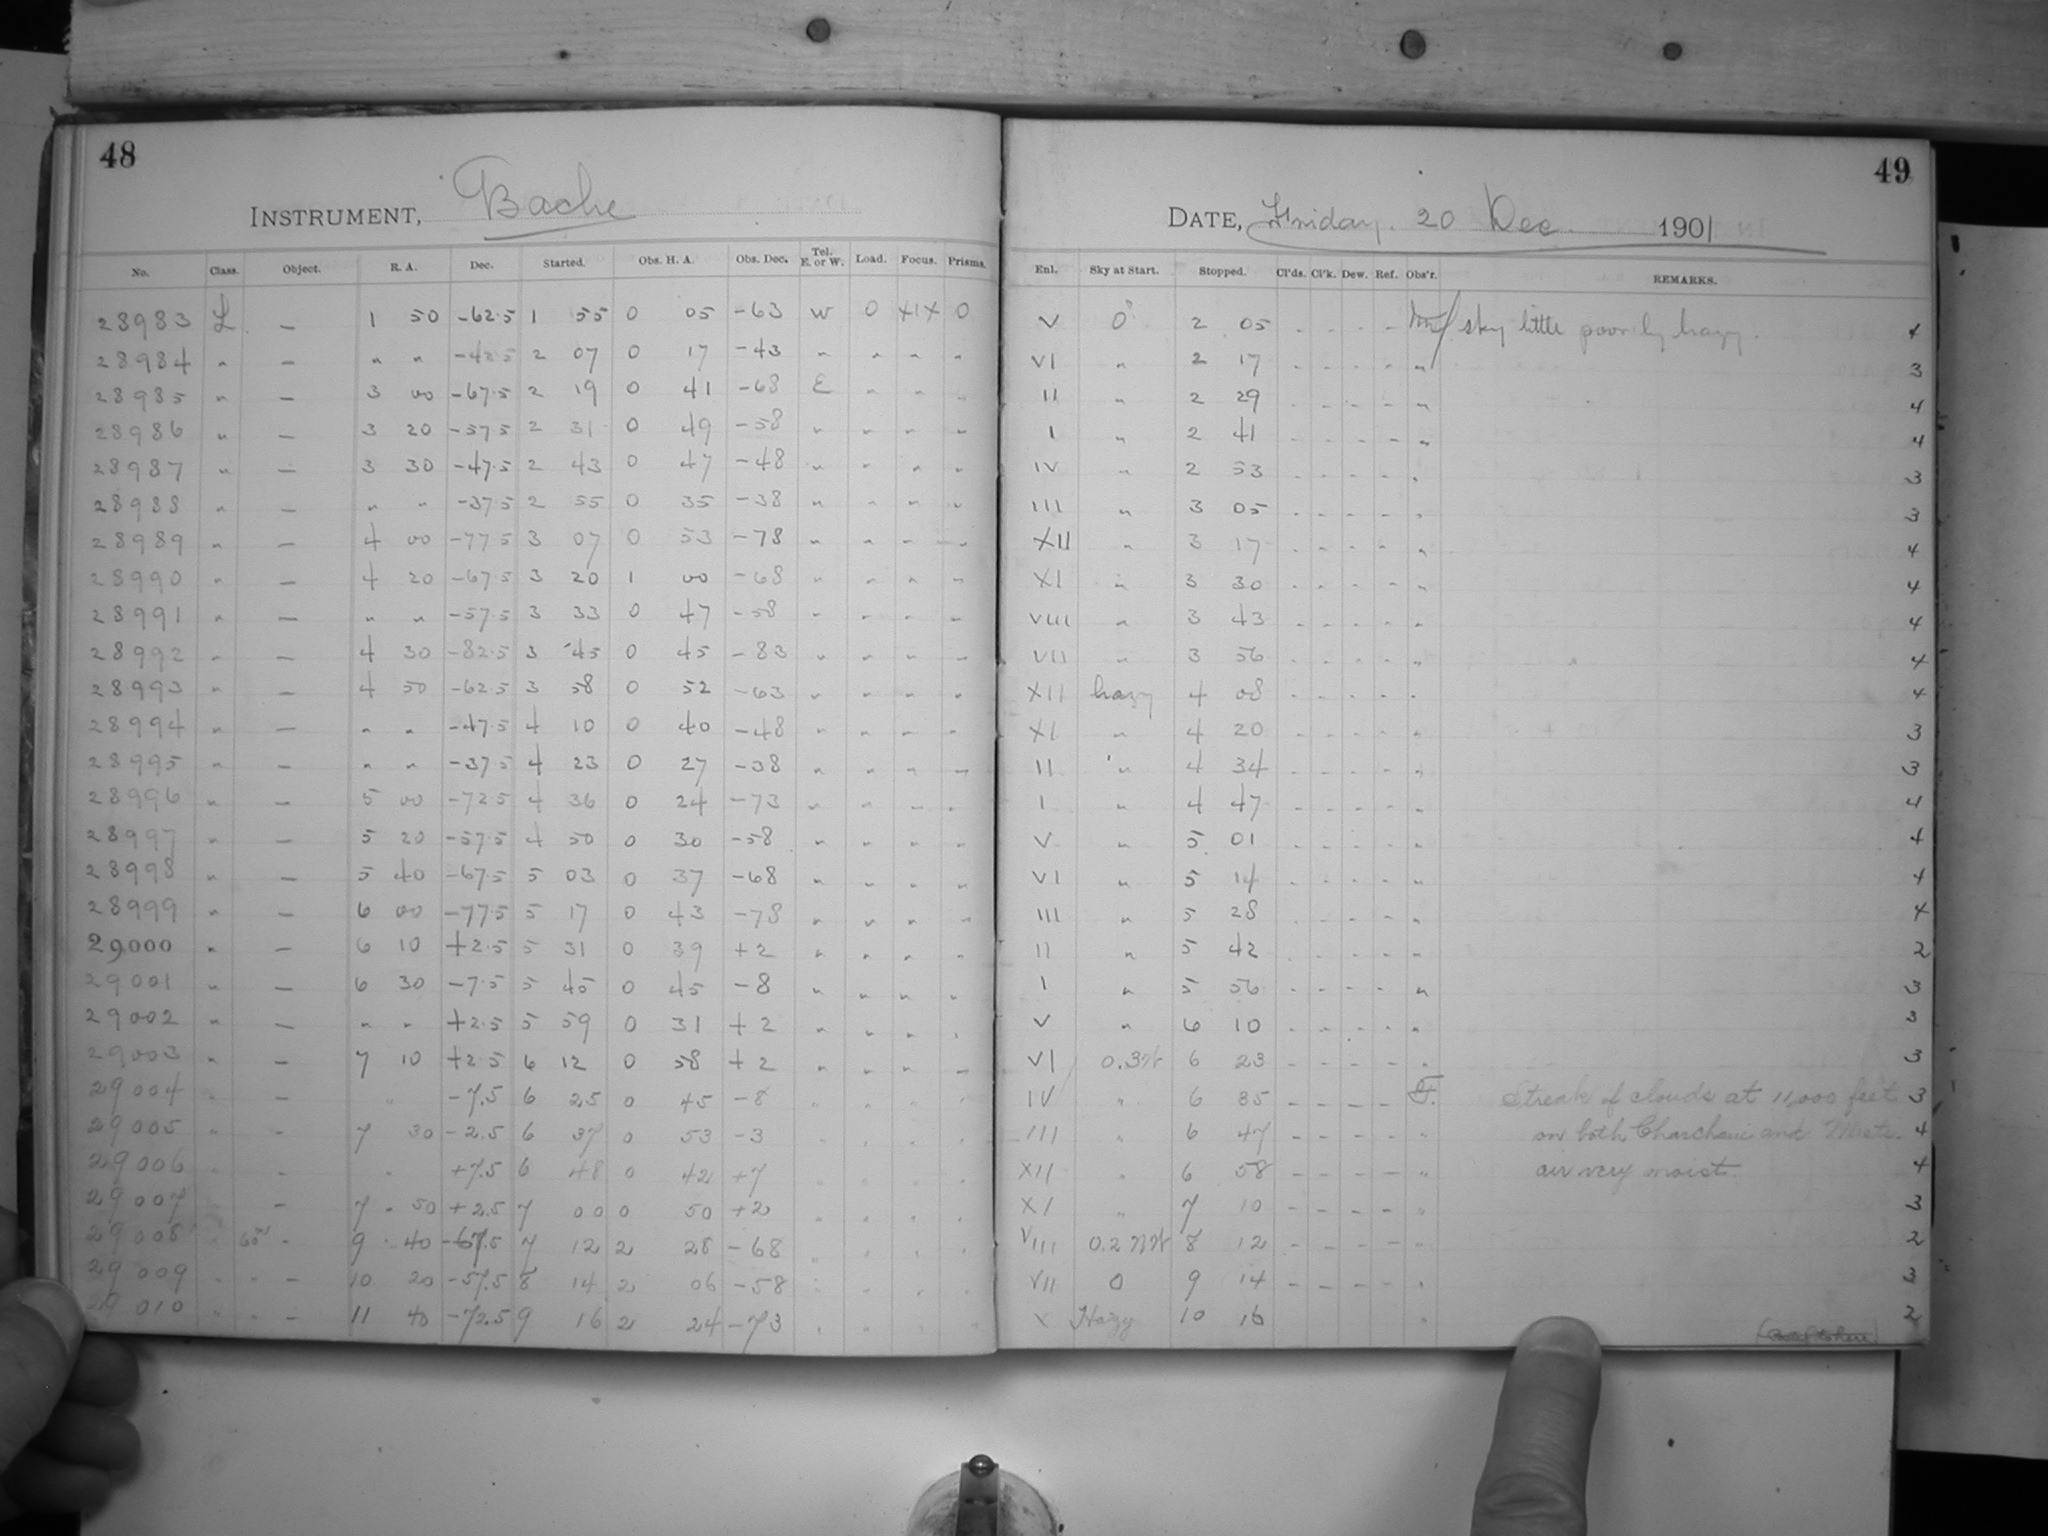 48
INSTRUMENT, Bache
No. Class. Object. R. A. Dec. Started. Obs. H. A. Obs. Dec. Tel. E. or W. Load. Focus. Prisms.
28983 L — 1 50 -62.5 1 55 0 05 -63 W 0 0
28984 " — " " -42.5 2 07 0 17 -43 " " " "
28985 " — 3 00 -67.5 2 19 0 41 -68 E " " "
28986 " — 3 20 -57.5 2 31 0 49 -58 " " " "
28987 " — 3 30 -47.5 2 43 0 47 -48 " " " "
28988 " — " " -37.5 2 55 0 35 -38 " " " "
28989 " — 4 00 -77.5 3 07 0 53 -78 " " " "
28990 " — 4 20 -67.5 3 20 1 00 -68 " " " "
28991 " — " " -57.5 3 33 0 47 -58 " " " "
28992 " — 4 30 -82.5 3 45 0 45 -83 " " " "
28993 " — 4 50 -62.5 3 58 0 52 -63 " " " "
28994 " — " " -47.5 4 10 0 40 -48 " " " "
28995 " — " " -37.5 4 23 0 27 -38 " " " "
28996 " — 5 00 -72.5 4 36 0 24 -73 " " " "
28997 " — 5 20 -57.5 4 50 0 30 -58 " " " "
28998 " — 5 40 -67.5 5 03 0 37 -68 " " " "
28999 " — 6 00 -77.5 5 17 0 43 -78 " " " "
29000 " — 6 10 +2.5 5 31 0 39 +2 " " " "
29001 " — 6 30 -7.5 5 45 0 45 -8 " " " "
29002 " — " " +2.5 5 59 0 31 +2 " " " "
29003 " — 7 10 +2.5 6 12 0 58 +2 " " " "
29004 " — " -7.5 6 25 0 45 -8 " " " "
29005 " - 7 30 -2.5 6 37 0 53 -3 " " " "
29006 " - " +7.5 6 48 0 42 +7 " " " "
29007 — 7 50 +2.5 7 00 0 50 +2 " " " "
29008 " 60m - 9 40 -67.5 7 12 2 28 -68 " " " "
29009 " " — 10 20 -57.5 8 14 2 06 -58 " " " "
29010 " " - 11 40 -72.5 9 16 2 24 -73 " " " "
49
DATE, Friday. 20 Dec. 1901
Enl. Sky at Start. Stopped. Cl'ds. Cl'k. Dew. Ref. Obs'r. REMARKS.
V 0 2 05 - - - - sky little poor by hazy. 4
VI " 2 17 - - - - " 3
II " 2 29 - - - - " 4
I " 2 41 - - - - " 4
IV " 2 53 - - - - " 3
III " 3 05 - - - - " 3
XII " 3 17 - - - - " 4
XI " 3 30 - - - - " 4
VIII " 3 43 - - - - " 4
VII " 3 56 - - - - " 4
XII hazy 4 08 - - - - " 4
XI " 4 20 - - - - " 3
II " 4 34 - - - - " 3
I " 4 47 - - - - " 4
V " 5 01 - - - - " 4
VI " 5 14 - - - - " 4
III " 5 28 - - - - " 4
II " 5 42 - - - - " 2
I " 5 56 - - - - " 3
V " 6 10 - - - - " 3
VI 0.3 6 23 - - - - " 3
IV " 6 35 - - - - F. Streak of clouds at 11,000 feet 3
III " 6 47 - - - - " on both Charchani and Miste. 4
XII " 6 58 - - - - " air very moist. 4
XI " 7 10 - - - - " 3
VIII 0.2 8 12 - - - - " 2
VII 0 9 14 - - - - " 3
X Hazy 10 16 " 2